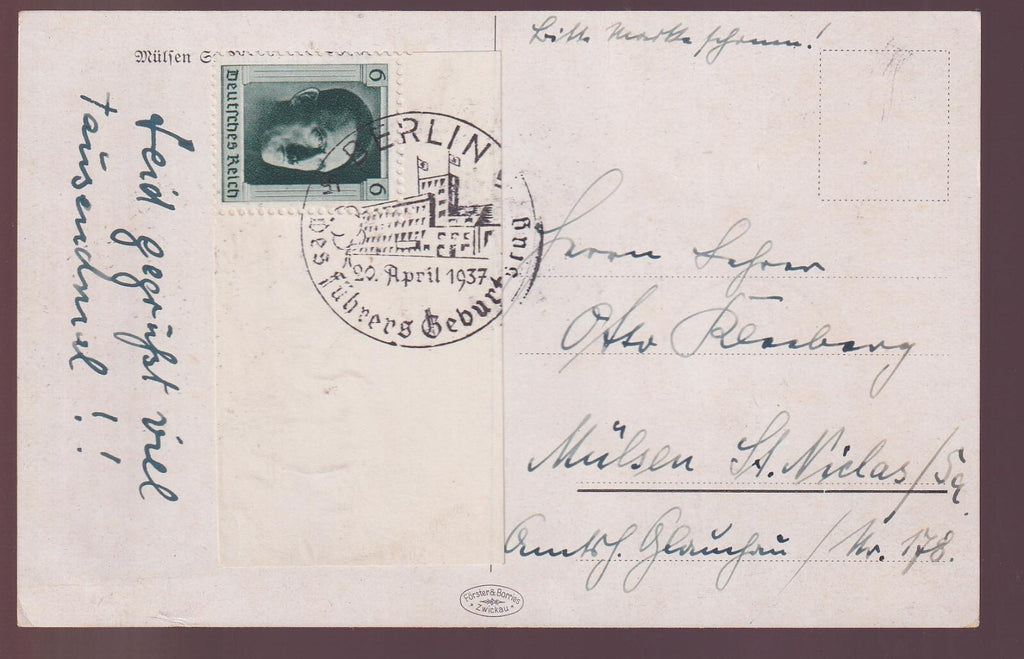 Bitte Marke schonen!
Mülsen S
Deutsches Reich
6
6
BERLIN
20. April 1937
Des Führers Geburts
Seid gegrüßt viel
tausendmal!!
Herrn Lehrer
Otto Kleeberg
Mülsen St. Niclas/Sa.
Amtsh. Glauchau / Nr. 178.
Förster & Borries
Zwickau